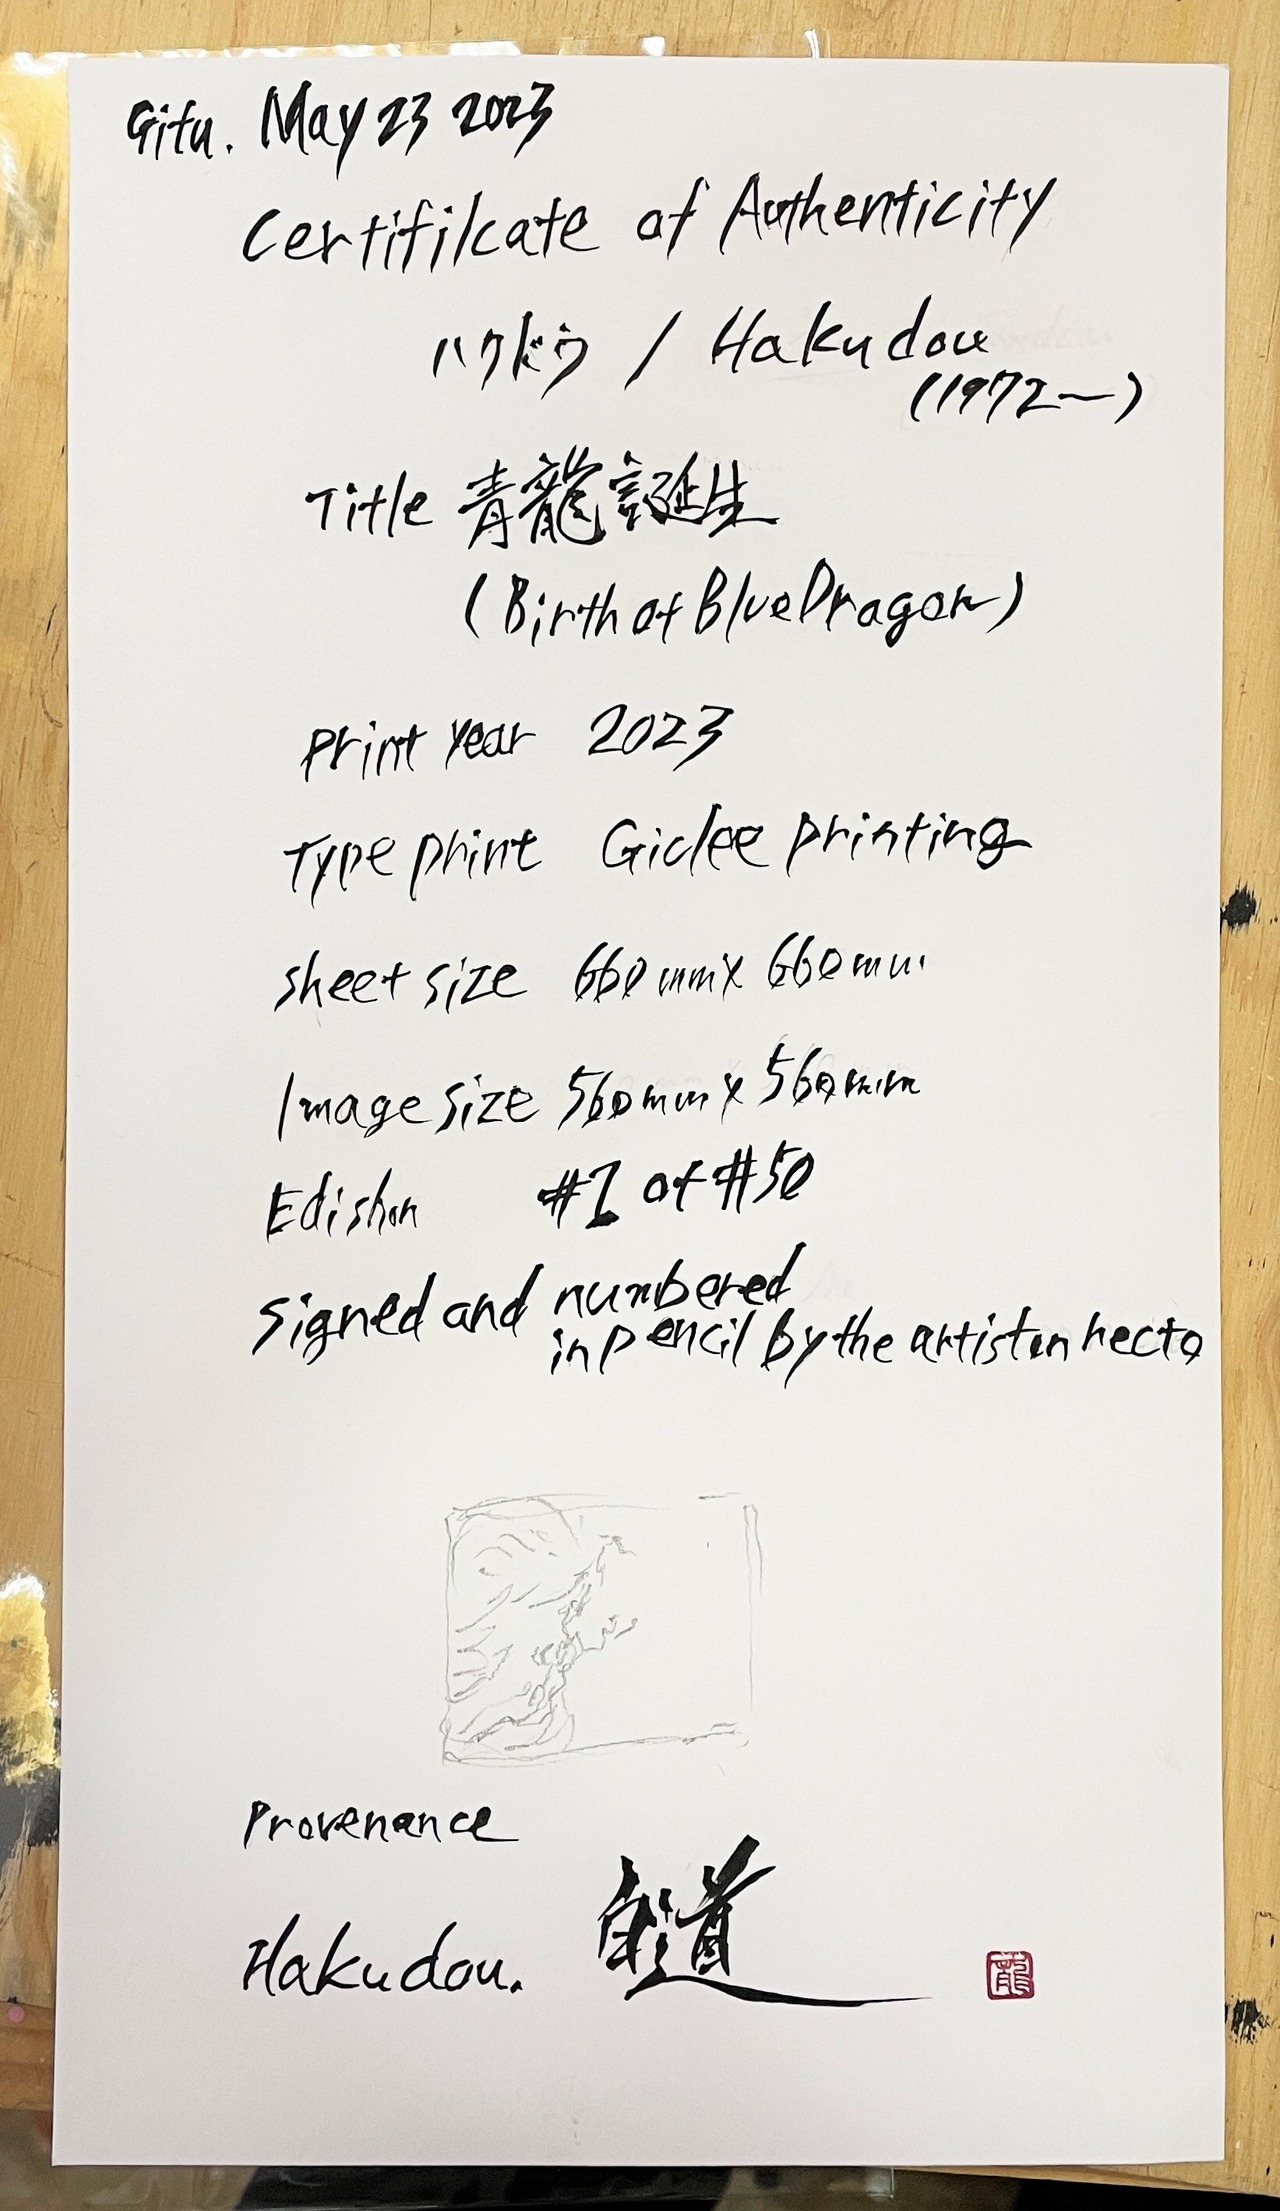 Gifu. May 23 2023
Certifilcate of Authenticity
ハクドウ / Hakudou
(1972〜)
Title 青龍誕生
(Birth of Blue Dragon)
Print year 2023
Type print Giclee printing
sheet size 660mm x 660mm
Image size 560mm x 560mm
Edishon #1 of #50
signed and numbered
in pencil by the artist on recto
Provenance
Hakudou. 白道
龍